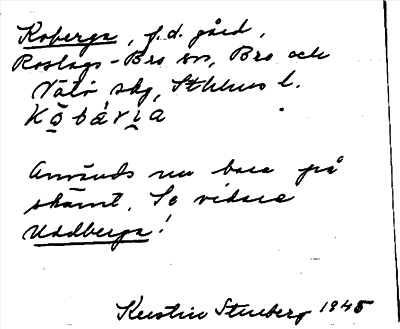 Koberga, f.d. gård,
Roslags-Bro sn, Bro och
Vätö skg, Sthlms l.
Kǭbárị̄a
Används nu bara på
skämt. Se vidare
Uddberga!
Kerstin Stenberg 1945